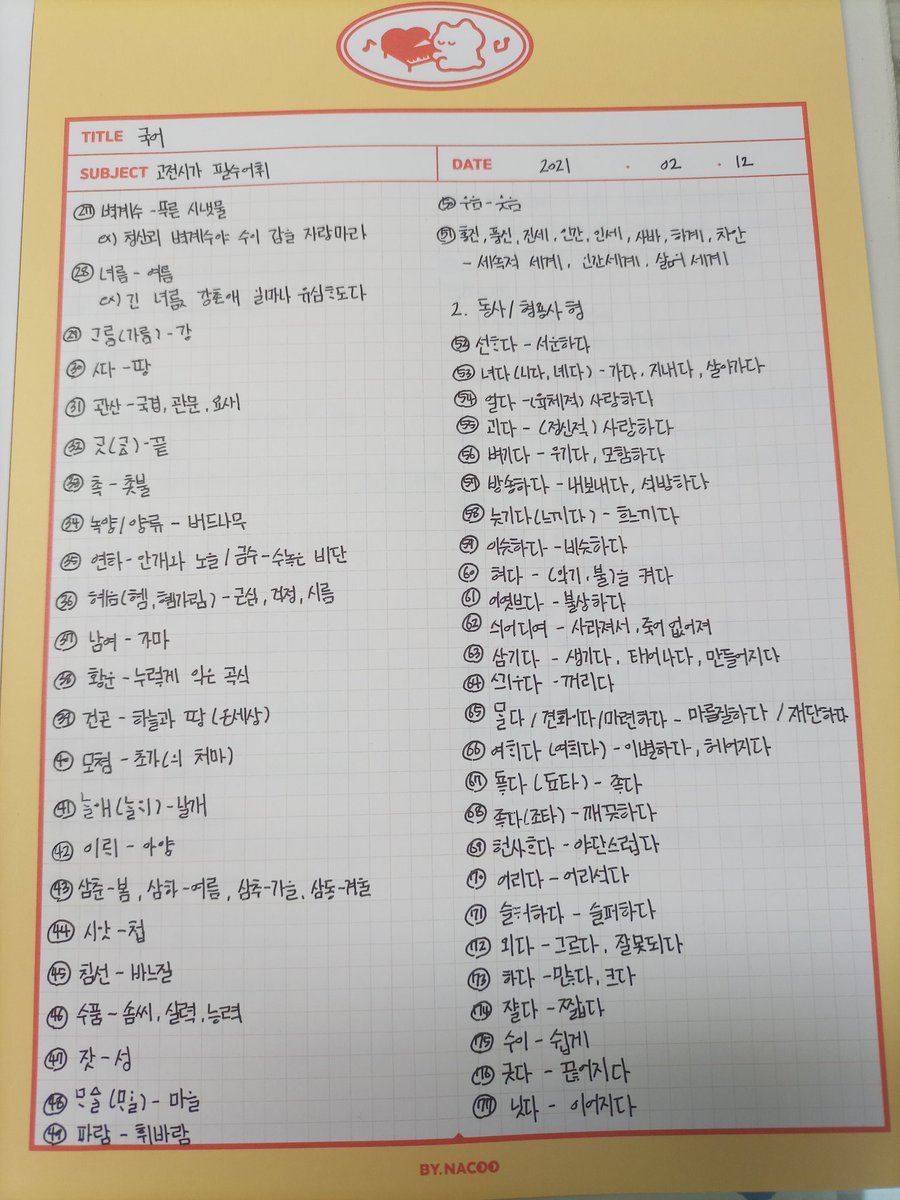 TITLE 국어
SUBJECT 고전시가 필수어휘
DATE 2021 . 02 . 12
㉗ 벽계수 - 푸른 시냇물
ex) 청산리 벽계수야 수이 감을 자랑마라
㉘ 녀름 - 여름
ex) 긴 녀름 강촌애 일마다 유심ᄒᆞ도다
㉙ ᄀᆞ름(가름) - 강
㉚ ᄯᅡ - 땅
㉛ 관산 - 국경, 관문, 요새
㉜ 긋(긏) - 끝
㉝ 촉 - 촛불
㉞ 녹양/양류 - 버드나무
㉟ 연하 - 안개와 노을 / 금수 - 수놓은 비단
㊱ 혜음(혬, 혬가림) - 근심, 걱정, 시름
㊲ 남여 - 가마
㊳ 황운 - 누렇게 익은 곡식
㊴ 건곤 - 하늘과 땅 (온세상)
㊵ 모쳠 - 초가(의 처마)
㊶ ᄂᆞᆯ애(ᄂᆞᆯᄋᆡ) - 날개
㊷ 이릐 - 아양
㊸ 삼춘-봄, 삼하-여름, 삼추-가을, 삼동-겨울
㊹ 시앗 - 첩
㊺ 침선 - 바느질
㊻ 수품 - 솜씨, 실력, 능력
㊼ 잣 - 성
㊽ ᄆᆞ슬 (ᄆᆞ을) - 마을
㊾ 파람 - 휘바람
㊿ 우음 - 웃음
51 홍진, 풍신, 진세, 인간, 인세, 사바, 하계, 차안
- 세속적 세계, 인간세계, 삶의 세계
2. 동사/형용사 형
52 션ᄒᆞ다 - 서운하다
53 녀다(니다, 녜다) - 가다, 지내다, 살아가다
54 얼다 - (육체적) 사랑하다
55 괴다 - (정신적) 사랑하다
56 벼기다 - 우기다, 모함하다
57 방송하다 - 내보내다, 석방하다
58 늣기다(느끼다) - 흐느끼다
59 이슷하다 - 비슷하다
60 혀다 - (악기, 불)을 켜다
61 어엿브다 - 불상하다
62 싀어디여 - 사라져서, 죽어 없어져
63 삼기다 - 생기다, 태어나다, 만들어지다
64 ᄭᅴ우다 - 꺼리다
65 ᄆᆞᆯ다 / 견화이다/마련하다 - 마름질하다 / 재단하다
66 여희다 (여희다) - 이별하다, 헤어지다
67 둏다 (됴타) - 좋다
68 좋다(조타) - 깨끗하다
69 헌사ᄒᆞ다 - 야단스럽다
70 어리다 - 어리석다
71 슬허하다 - 슬퍼하다
72 외다 - 그르다, 잘못되다
73 하다 - 많다, 크다
74 쟐다 - 짧다
75 수이 - 쉽게
76 긋다 - 끊어지다
77 닛다 - 이어지다
BY.NACOO